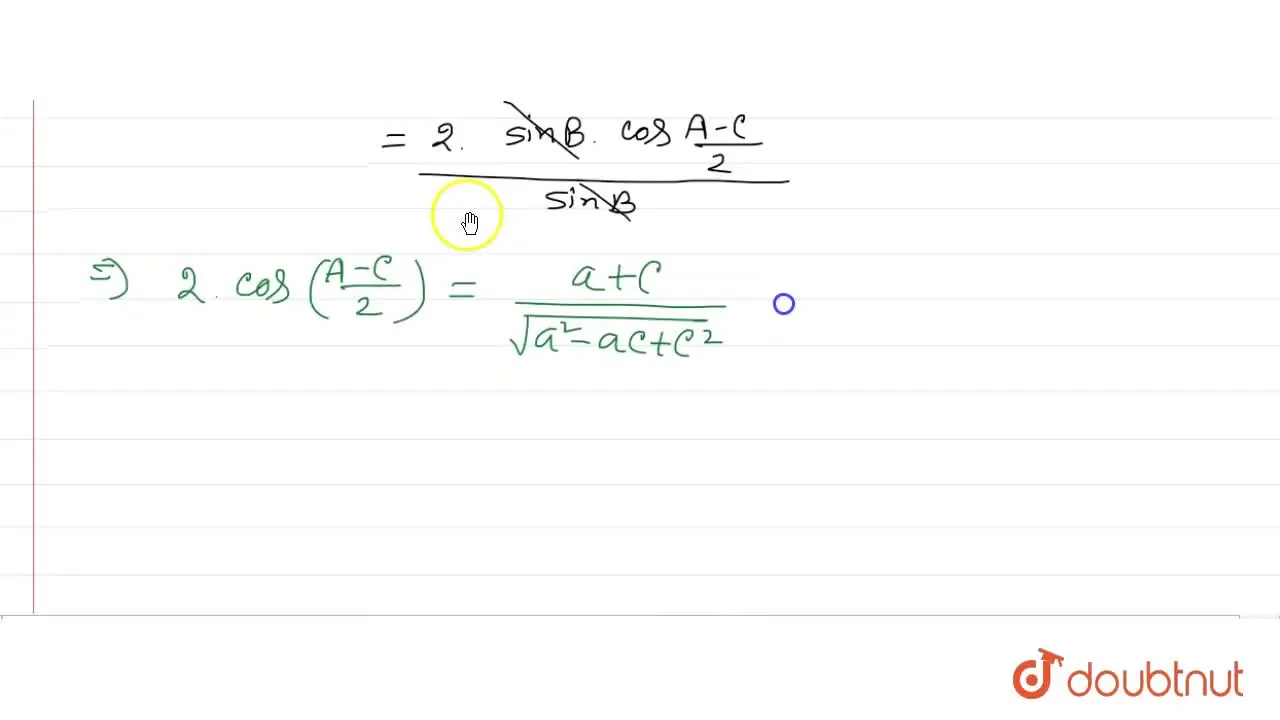 = 2. sin B. cos A-C/2
sin B
⇒ 2. cos (A-C/2) = a+c/√a²-ac+c²
doubtnut